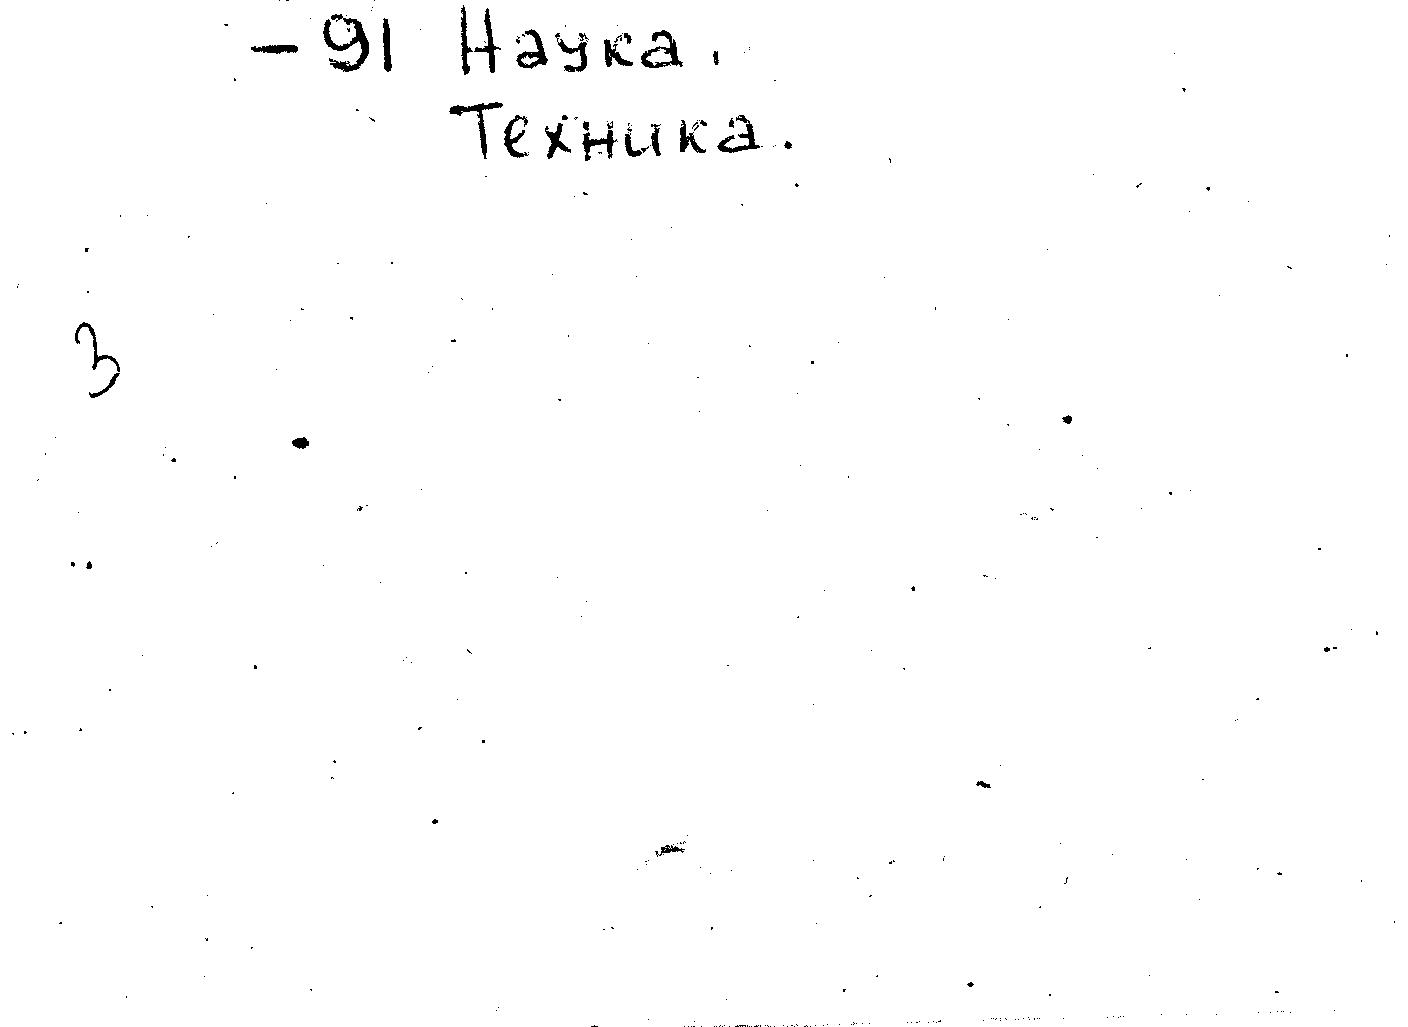 -91 Наука.
Техника.
3